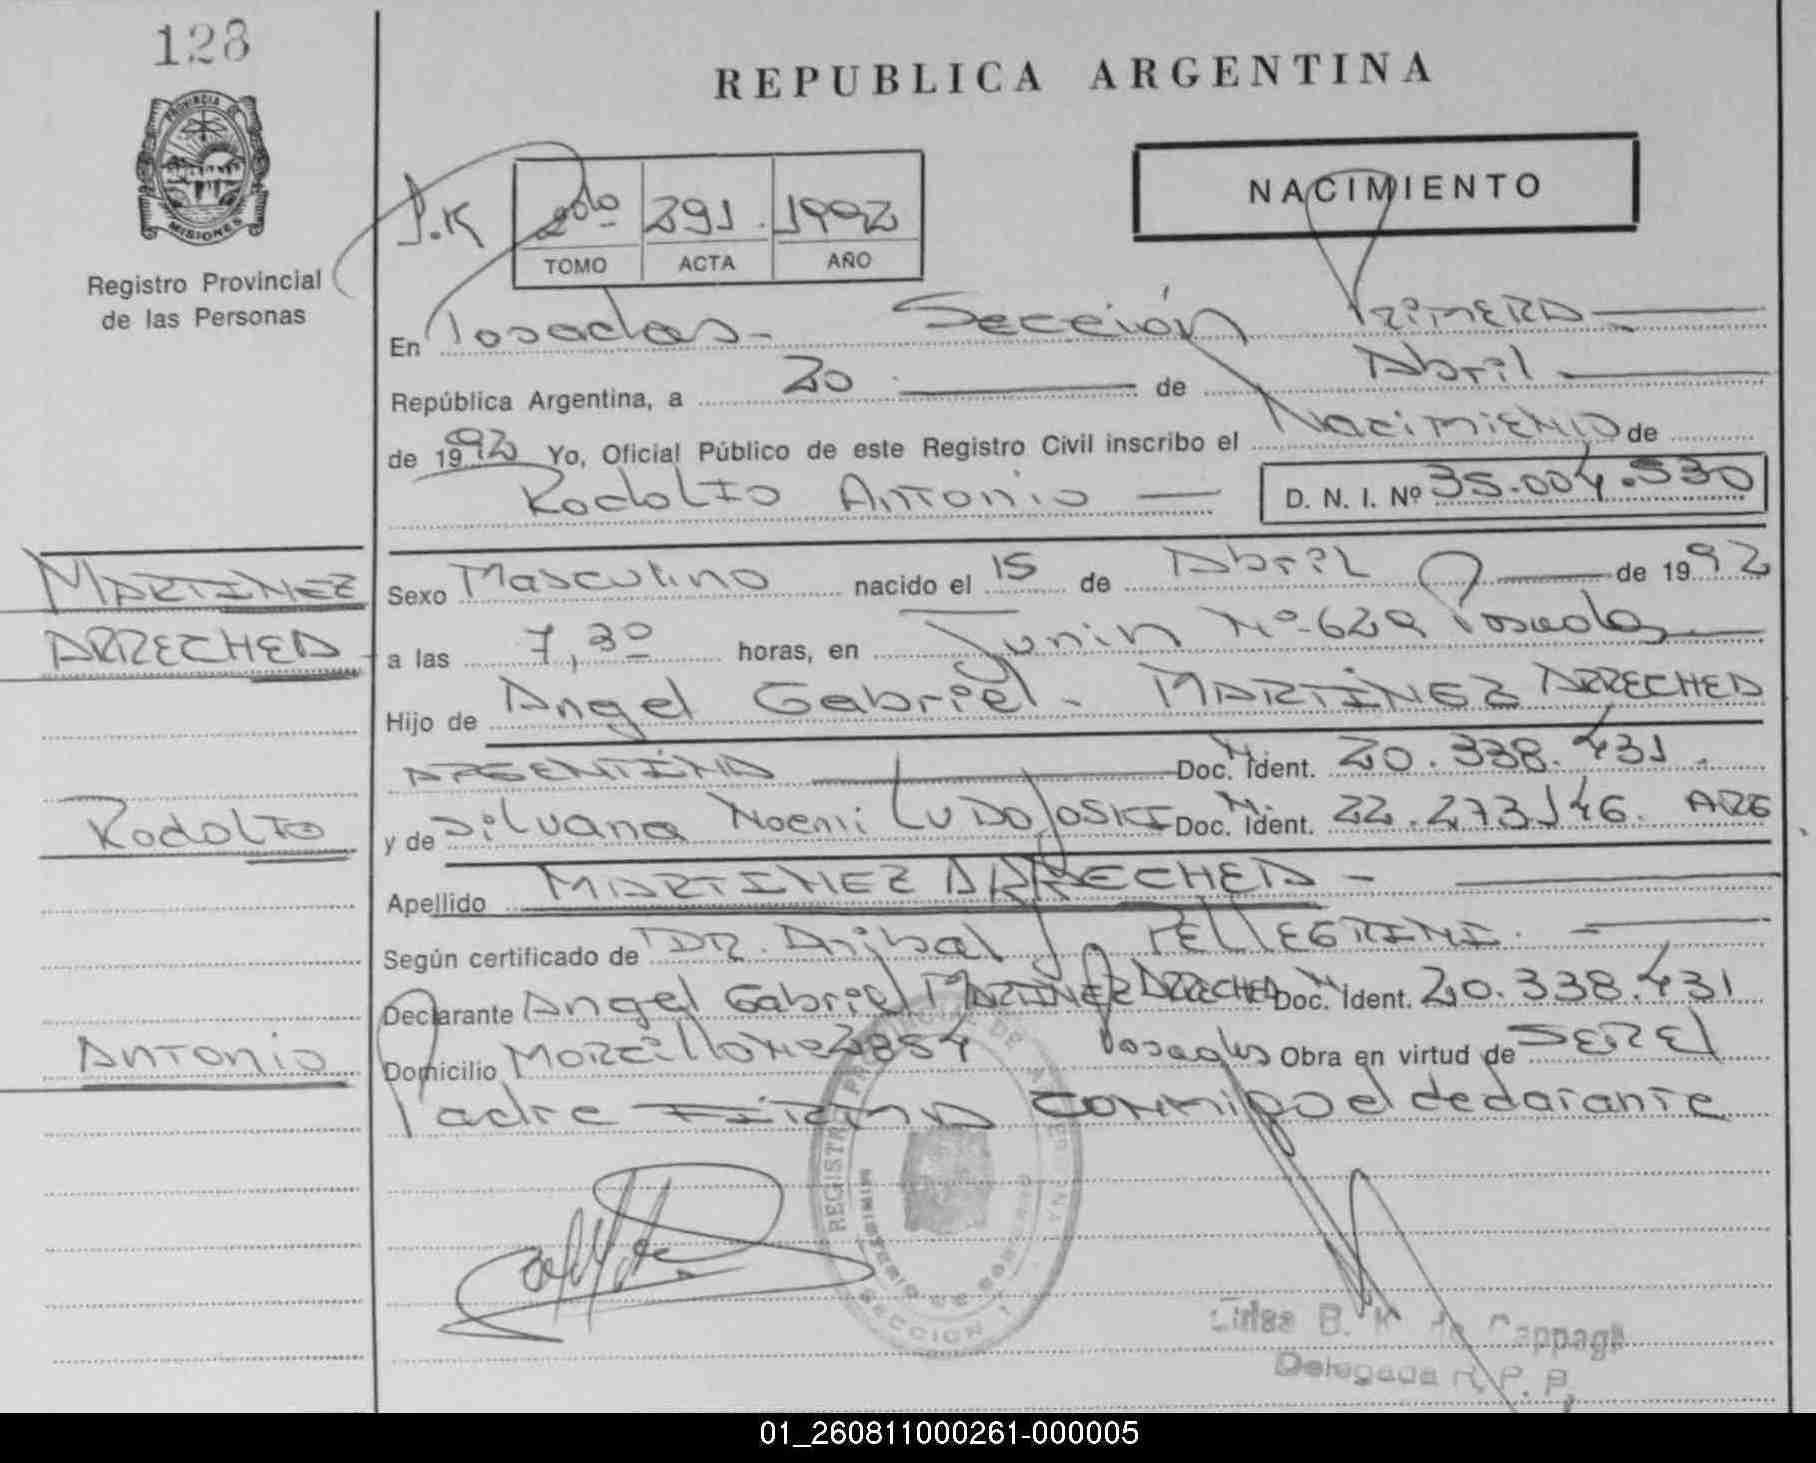 128
REPUBLICA ARGENTINA
PROVINCIA DE
MISIONES
Registro Provincial
de las Personas
NACIMIENTO
J.K 2do 291 1992
TOMO ACTA AÑO
En Posadas - Sección Primera
República Argentina, a 20 de Abril
de 1992 Yo, Oficial Público de este Registro Civil inscribo el Nacimiento de
Rodolfo Antonio D. N. I. Nº 35.004.530
MARTINEZ
ARRECHEA
Rodolfo
Antonio
Sexo Masculino nacido el 15 de Abril de 1992
a las 7,30 horas, en Junin Nº 629 Posadas
Hijo de Angel Gabriel - MARTINEZ ARRECHEA
ARGENTINA Doc. Ident. 20.338.431.
y de Silvana Noemi LUDOJOSKI Doc. Ident. 22.273.146. ARG
Apellido MARTINEZ ARRECHEA -
Según certificado de DR. Anibal J PELLEGRINI.
Declarante Angel Gabriel MARTINEZ ARRECHEA Doc. Ident. 20.338.431
Domicilio Morcillo Nº 2854 Posadas Obra en virtud de SER El
Padre FIRMA conmigo el declarante
REGISTRO PROVINCIAL DE
MINISTERIO DE GOBIERNO
SECCION 1
B. K de Cappagli
Delegada R. P. P.
01_260811000261-000005